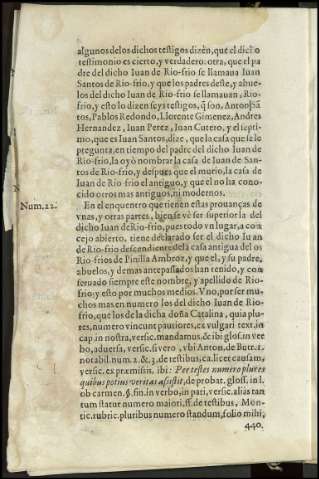 algunos de los dichos testigos dizen, que el dicho
testimonio es cierto, y verdadero: otra, que el pa
dre del dicho Iuan de Rio-frio se llamaua Iuan
Santos de Rio-frio, y que los padres deste, y abue-
los del dicho Iuan de Rio-frio se llamauan, Rio-
frio, y esto lo dizen seys testigos, q̃ son, Antoo Sã
tos, Pablos Redondo, Llorente Gimenez, Andres
Hernandez, Iuan Perez, Iuan Cutero, y el septi-
mo, que es Iuan Santos, dize, que la casa que se le
pregunta, en tiempo del padre del dicho Iuan de
Rio-frio, la oyò nombrar la casa de Iuan de San-
tos de Rio-frio, y despues que el murio, la casa de
Iuan de Rio-frio el antiguo, y que el no ha cono-
cido otros mas antiguos, ni modernos.
Num. 22.
En el enquentro que tienen estas prouanças de
vnas, y otras partes, bien se vè ser superior la del
dicho Iuan de Rio-frio, pues todo vn lugar, a con-
cejo abierto, tiene declarado ser el dicho Iuan
de Rio-frio descendiente de la casa antigua de los
Rio-frios de Pinilla Ambroz, y que el, y su padre,
abuelos, y demas antepassados han tenido, y con
seruado siempre este nombre, y apellido de Rio-
frio: y esto por muchos medios. Vno, por ser mu-
chos mas en numero los del dicho Iuan de Rio-
frio, que los de la dicha doña Catalina, quia plu-
res, numero vincunt pautiores, ex vulgari text. in
cap. in nostra, versic. mandamus, & ibi glos. in ver
bo, aduersa, versic. si vero, vbi Anton. de Butr. 1.
notabil. num. 2. & 3. de testibus, ca. licet causam,
versic. ex præmissis, ibi: Per testes numero plures
quibus potius veritas assistit, de probat. gloss. in l.
ob carmen. §. fin. in verbo, in pari, versic. aliàs tan
tum statur numero maiori, ff. de testibus, Mon-
tic. rubric. pluribus numero standum, folio mihi,
440.